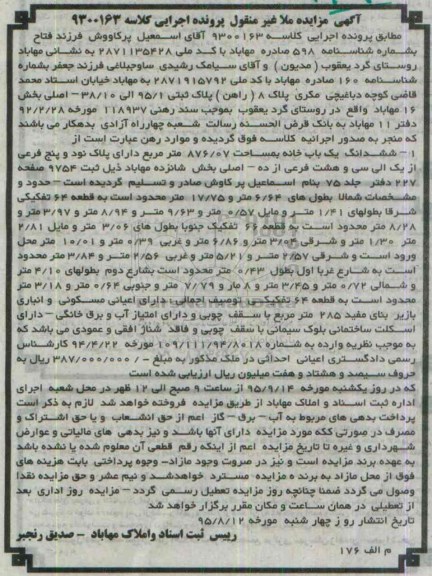 آگهی مزایده مـلا غیر منقول پرونده اجرایی کلاسه ۹۳۰۰۱۶۳
مطابق پرونده اجرایی کلاسه ۹۳۰۰۱۶۳ آقای اسمعیل پرکاووش فرزند فتاح
بشماره شناسنامه ۵۹۸ صادره مهاباد با کد ملی ۲۸۷۱۱۳۵۴۲۸ به نشانی مهاباد
روستای گرد یعقوب (مدیون) و آقای سیامک رشیدی ساوجبلاغی فرزند جعفر بشماره
شناسنامه ۱۶۰ صادره مهاباد با کد ملی ۲۸۷۱۹۱۵۷۹۲ به مهاباد خیابان استاد محمد
قاضی کوچه دباغیچی مکری پلاک ۸ (راهن) پلاک ثبتی ۹۵/۱ الی ۳۸/۱۰ – اصلی بخش
۱۶ مهاباد واقع در روستای گرد یعقوب بموجب سند رهنی ۱۱۸۹۳۷ مورخه ۹۲/۲/۲۸
دفتر ۱۱ مهاباد به بانک قرض الحسنه رسالت شعبه چهارراه آزادی بدهکار می باشند
که منجر به صدور اجرائیه کلاسه فوق گردیده و موارد رهن عبارت است از
۱ – ششدانگ یک باب خانه بمساحت ۸۷۶/۰۷ متر مربع دارای پلاک نود و پنج فرعی
از یک الی سی و هشت فرعی از ده – اصلی بخش شانزده مهاباد ذیل ثبت ۹۷۵۴ صفحه
۲۲۷ دفتر جلد ۷۵ بنام اسماعیل پر کاوش صادر و تسلیم گردیده است – حدود و
مشخصات شمالا بطول های ۶/۶۴ متر و ۱۷/۷۵ متر محدود است به قطعه ۶۴ تفکیکی
شرقا بطولهای ۱/۴۱ متر و مایل ۰/۵۷ متر و ۹/۶۳ متر و ۸/۹۴ متر و ۳/۹۷ متر و
۸/۲۸ متر محدود است به قطعه ۶۶ تفکیک جنوبا بطول های ۳/۰۶ متر و مایل ۲/۸۱
متر ۱/۳۰ متر و شرقی ۳/۰۴ متر و ۶/۸۶ متر و غربی ۰/۳۹ متر و ۱۰/۰۱ متر محل
ورود است و شرقی ۲/۵۷ متر و ۵/۲۱ متر و غربی ۲/۵۶ متر و ۳/۸۴ متر محدود
است به شارع غربا اول بطول ۰/۴۳ متر محدود است بشارع دوم بطولهای ۴/۱۰ متر
و شمالی ۰/۷۲ متر و ۳/۴۵ متر و ۸ مار و ۷/۷۹ متر و جنوبی ۰/۶۴ متر و ۳/۱۸ متر
محدود است به قطعه ۶۴ تفکیکی توصیف اجمالی دارای اعیانی مسکونی و انباری
بازیر بنای مفید ۲۸۵ متر مربع با سقف چوبی و دارای امتیاز آب و برق خانگی – دارای
اسکلت ساختمانی بلوک سیمانی با سقف چوبی و فاقد شناژ افقی و عمودی می باشد که
به موجب نظریه وارده به شماره ۱۰۹/۱۱۱/۹۴/۸۰۱۸ مورخه ۹۴/۴/۲۲ کارشناس
رسمی دادگستری اعیانی احداثی در ملک مذکور به مبلغ –/۳۸۷/۰۰۰/۰۰۰ ریال به
حروف سیصد و هشتاد و هفت میلیون ریال ارزیابی شده است
که در روز یکشنبه مورخه ۹۵/۹/۱۴ از ساعت ۹ صبح الی ۱۲ ظهر در محل شعبه اجرای
اداره ثبت اسناد و املاک مهاباد از طریق مزایده فروخته خواهد شد لازم به ذکر است
پرداخت بدهی های مربوط به آب – برق – گاز اعم از حق انشعاب و یا حق اشتراک و
مصرف در صورتی ککه مورد مزایده دارای آنها باشد و نیز بدهی های مالیاتی و عوارض
شهرداری و غیره تا تاریخ مزایده اعم از اینکه رقم قطعی آن معلوم شده یا نشده باشد
به عهده برند مزایده است و نیز در صروت وجود مازاد- وجوه پرداختی بابت هزینه های
فوق از محل مازاد به برنده ه مزایده مسترد خواهدشد و نیم عشر و حق مزایده نقدا
وصول می گردد ضمنا چنانچه روز مزایده تعطیل رسمی گردد – مزایده روز اداری بعد
از تعطیلی در همان ساعت و مکان مقرر برگزار خواهد شد
تاریخ انتشار رو ز چهار شنبه مورخه ۹۵/۸/۱۲
رییس ثبت اسناد واملاک مهاباد – صدیق رنجبر
م الف ۱۷۶